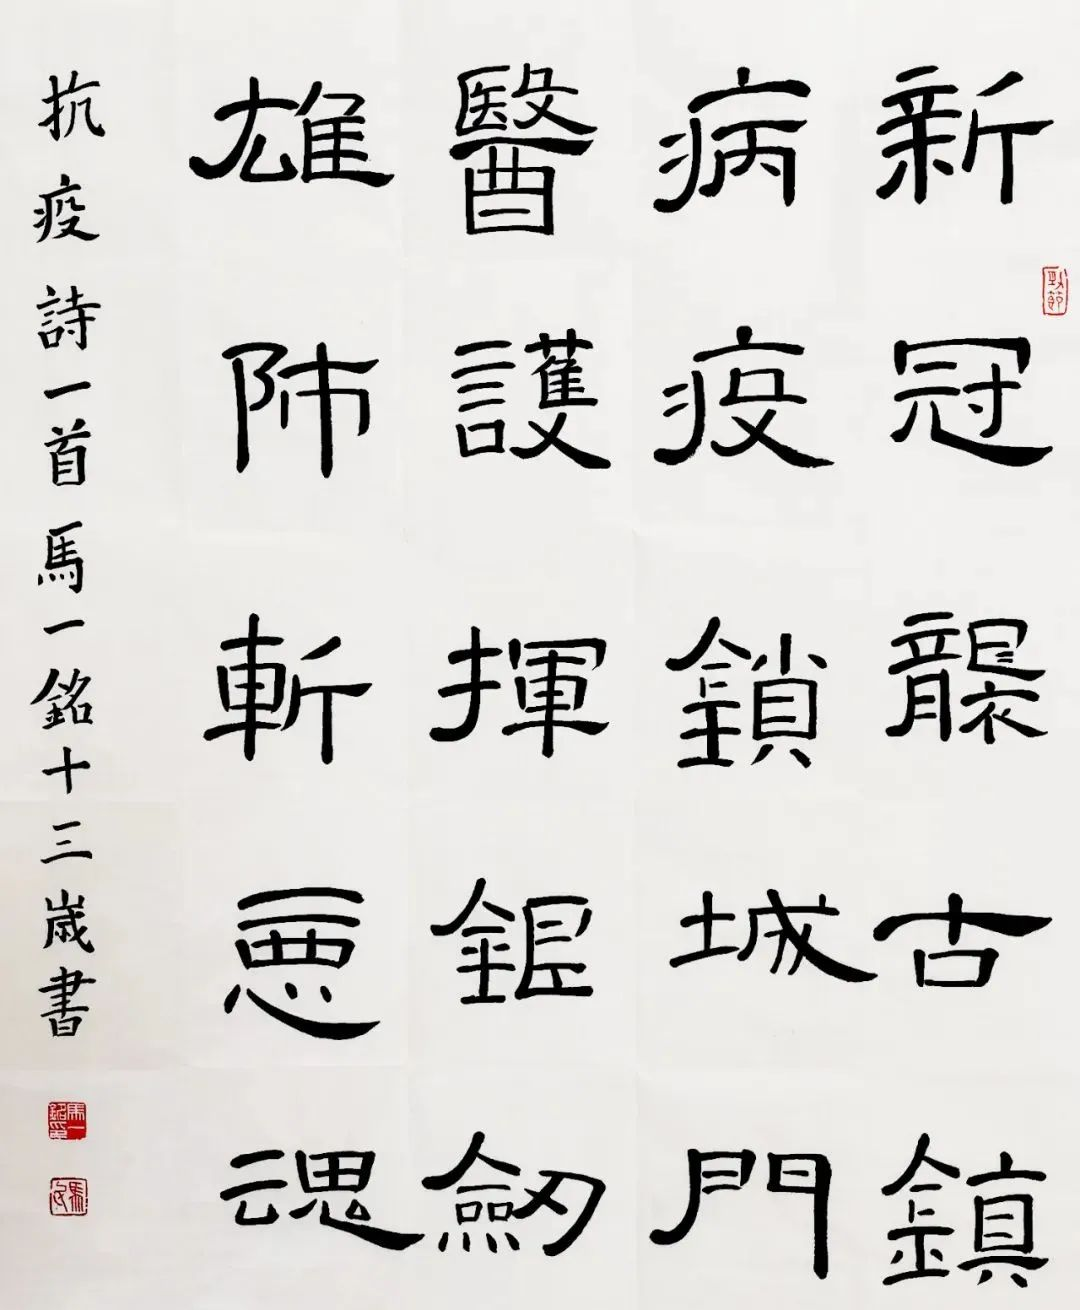 新冠襲古鎮
病疫鎖城門
醫護揮鉅劒
雄師斬惡魂
抗疫詩一首馬一銘十三歲書
馬一銘印